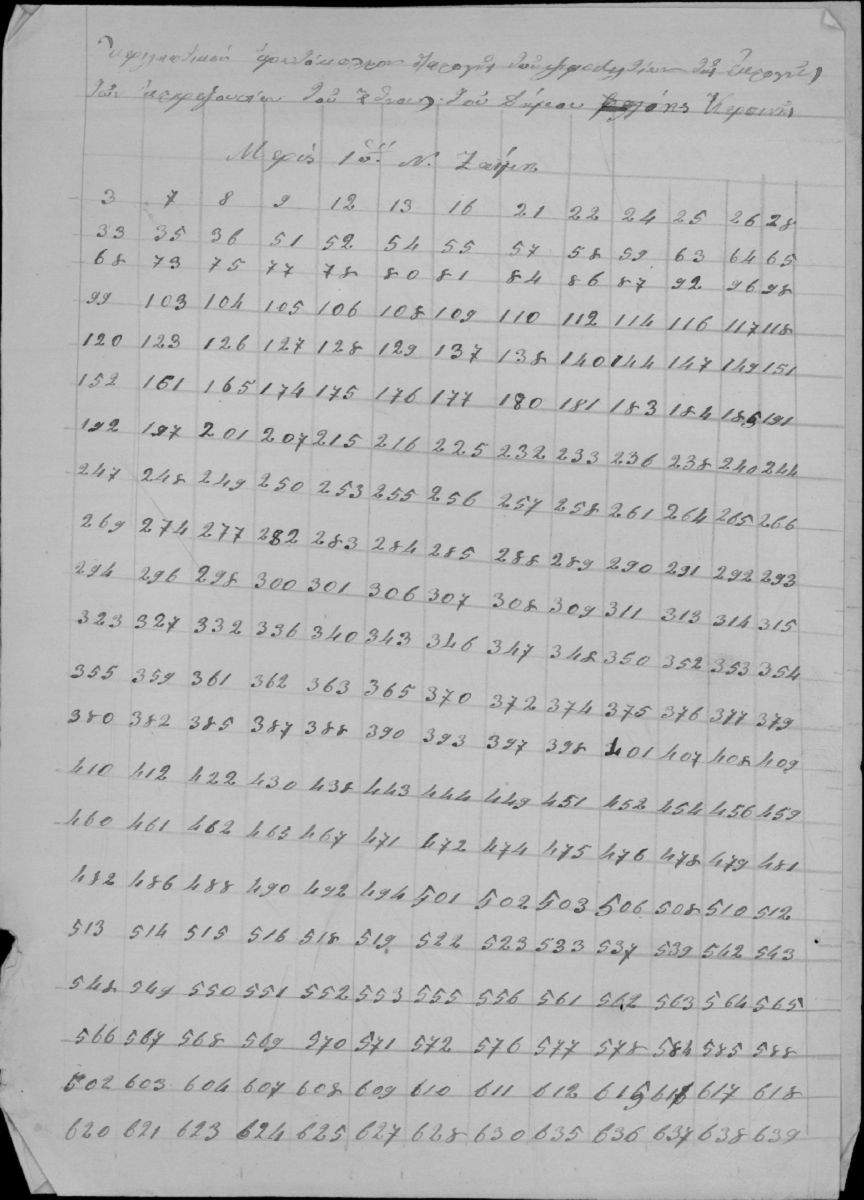 τῆς
τῶν τοῦ τοῦ Δήμου
Μερὶς 1η Ν. Ζαΐμη
3 7 8 9 12 13 16 21 22 24 25 26 28
33 35 36 51 52 54 55 57 58 59 63 64 65
68 73 75 77 78 80 81 84 86 87 92 96 98
99 103 104 105 106 108 109 110 112 114 116 117 118
120 123 126 127 128 129 137 138 140 144 147 149 151
152 161 165 174 175 176 177 180 181 183 184 185 191
192 197 201 207 215 216 225 232 233 236 238 240 244
247 248 249 250 253 255 256 257 258 261 264 265 266
269 274 277 282 283 284 285 288 289 290 291 292 293
294 296 298 300 301 306 307 308 309 311 313 314 315
323 327 332 336 340 343 346 347 348 350 352 353 354
355 359 361 362 363 365 370 372 374 375 376 377 379
380 382 385 387 388 390 393 397 398 401 407 408 409
410 412 422 430 438 443 444 449 451 452 454 456 459
460 461 462 463 467 471 472 474 475 476 478 479 481
482 486 488 490 492 494 501 502 503 506 508 510 512
513 514 515 516 518 519 522 523 533 537 539 542 543
548 549 550 551 552 553 555 556 561 562 563 564 565
566 567 568 569 570 571 572 576 577 578 584 585 588
602 603 604 607 608 609 610 611 612 615 616 617 618
620 621 623 624 625 627 628 630 635 636 637 638 639